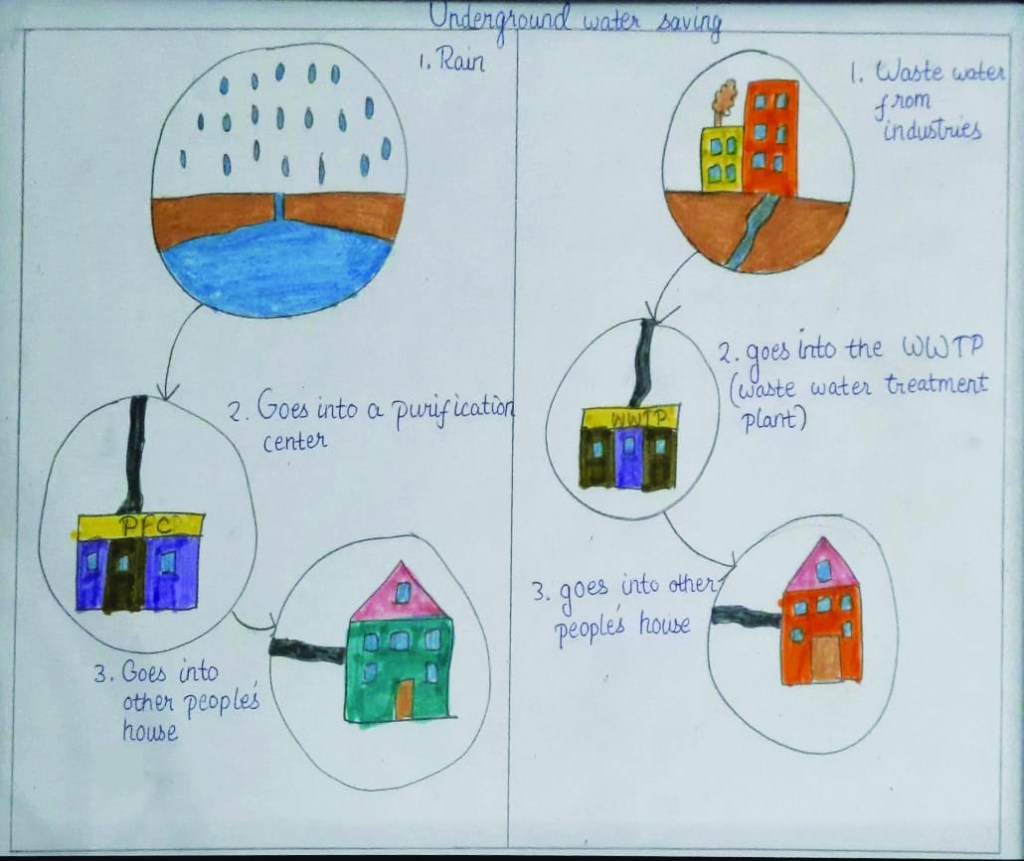 Underground water saving
1. Rain
2. Goes into a purification
center
PFC
3. Goes into
other people's
house
1. Waste water
from
industries
2. goes into the WWTP
(waste water treatment
plant)
WWTP
3. goes into other
people's house